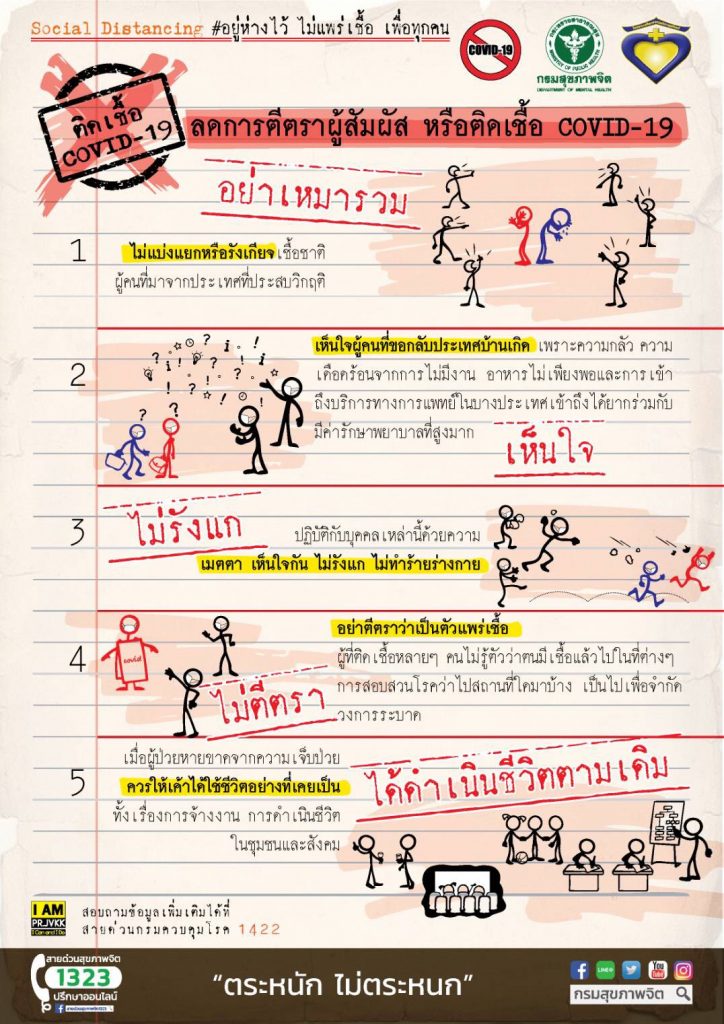 Social Distancing #อยู่ห่างไว้ ไม่แพร่เชื้อ เพื่อทุกคน
COVID-19
กระทรวงสาธารณสุข
MINISTRY OF PUBLIC HEALTH
กรมสุขภาพจิต
DEPARTMENT OF MENTAL HEALTH
ติดเชื้อ
COVID-19
ลดการตีตราผู้สัมผัส หรือติดเชื้อ COVID-19
อย่าเหมารวม
1
ไม่แบ่งแยกหรือรังเกียจเชื้อชาติ
ผู้คนที่มาจากประเทศที่ประสบวิกฤติ
2
เห็นใจผู้คนที่ขอกลับประเทศบ้านเกิด เพราะความกลัว ความ
เดือดร้อนจากการไม่มีงาน อาหารไม่เพียงพอและการเข้า
ถึงบริการทางการแพทย์ในบางประเทศเข้าถึงได้ยากร่วมกับ
มีค่ารักษาพยาบาลที่สูงมาก
เห็นใจ
3
ไม่รังแก
ปฏิบัติกับบุคคลเหล่านี้ด้วยความ
เมตตา เห็นใจกัน ไม่รังแก ไม่ทำร้ายร่างกาย
4
covid
อย่าตีตราว่าเป็นตัวแพร่เชื้อ
ผู้ที่ติดเชื้อหลายๆ คนไม่รู้ตัวว่าตนมีเชื้อแล้วไปในที่ต่างๆ
การสอบสวนโรคว่าไปสถานที่ใดมาบ้าง เป็นไปเพื่อจำกัด
วงการระบาด
ไม่ตีตรา
5
เมื่อผู้ป่วยหายขาดจากความเจ็บป่วย
ควรให้เค้าได้ใช้ชีวิตอย่างที่เคยเป็น
ทั้งเรื่องการจ้างงาน การดำเนินชีวิต
ในชุมชนและสังคม
ได้ดำเนินชีวิตตามเดิม
I AM
PRJVKK
I Can and I Do
สอบถามข้อมูลเพิ่มเติมได้ที่
สายด่วนกรมควบคุมโรค 1422
สายด่วนสุขภาพจิต
1323
ปรึกษาออนไลน์
สายด่วนสุขภาพจิต1323
“ตระหนัก ไม่ตระหนก”
LINE
You Tube
กรมสุขภาพจิต